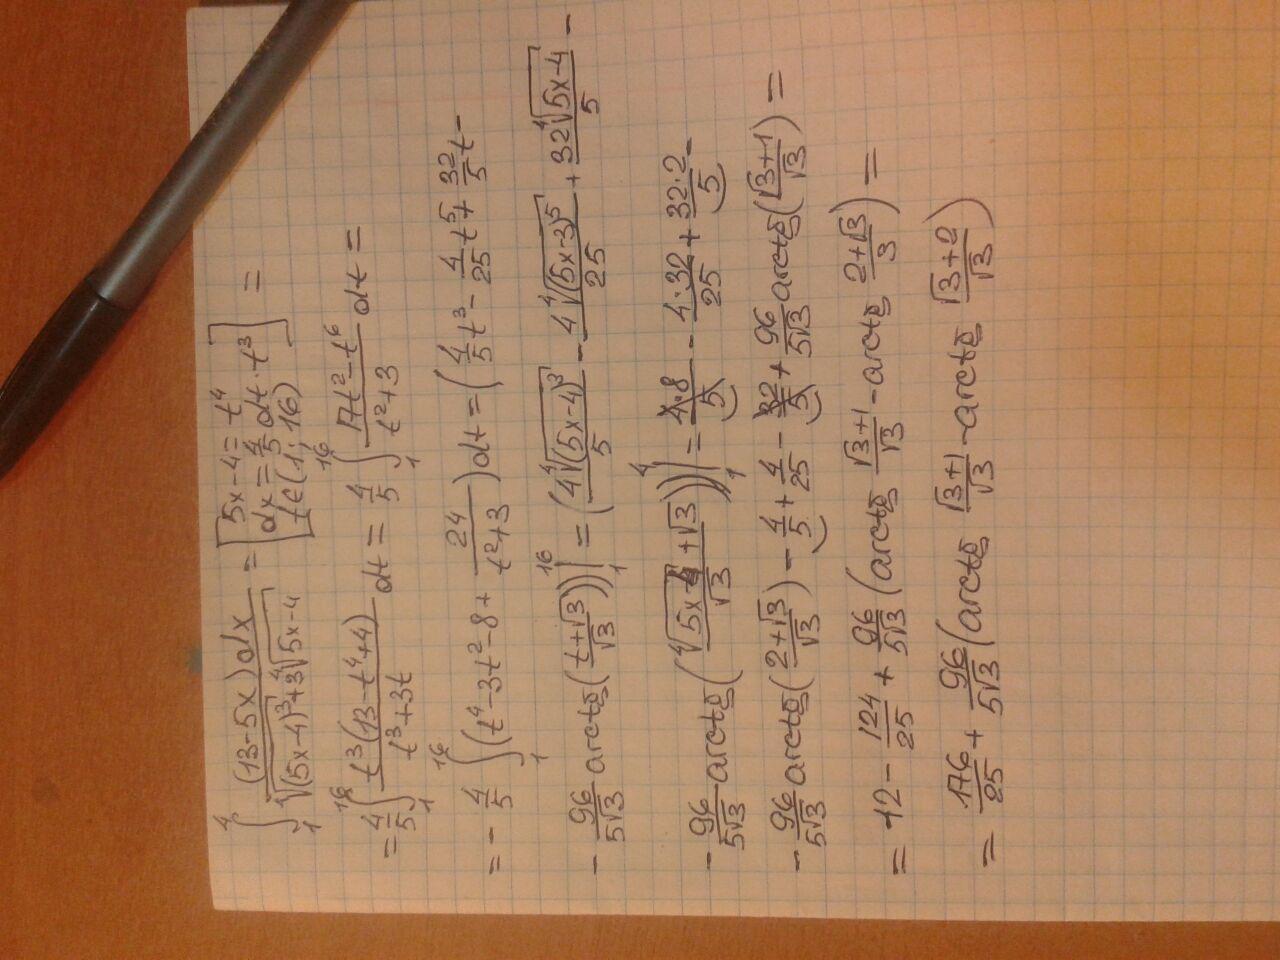 ∫₁⁴ (13-5x)dx / (⁴√(5x-4)³+3⁴√5x-4) = [5x-4=t⁴
dx=4/5 dt·t³
t∈(1;16)] =
= 4/5 ∫₁¹⁶ t³(13-t⁴+4) / (t³+3t) dt = 4/5 ∫₁¹⁶ (17t²-t⁶) / (t²+3) dt =
= - 4/5 ∫₁¹⁶ (t⁴-3t²-8+ 24/(t²+3))dt = (4/5 t³ - 4/25 t⁵ + 32/5 t -
- 96/(5√3) arctg((t+√3)/√3))|₁¹⁶ = (4⁴√(5x-4)³ / 5 - 4⁴√(5x-3)⁵ / 25 + 32⁴√5x-4 / 5 -
- 96/(5√3) arctg((⁴√5x-4+√3)/√3))|₁⁴ = 4·8/5 - 4·32/25 + 32·2/5 -
- 96/(5√3) arctg((2+√3)/√3) - 4/5 + 4/25 - 32/5 + 96/(5√3) arctg((√3+1)/√3) =
= 12 - 124/25 + 96/(5√3) (arctg (√3+1)/√3 - arctg (2+√3)/3) =
= 176/25 + 96/(5√3) (arctg (√3+1)/√3 - arctg (√3+2)/√3)